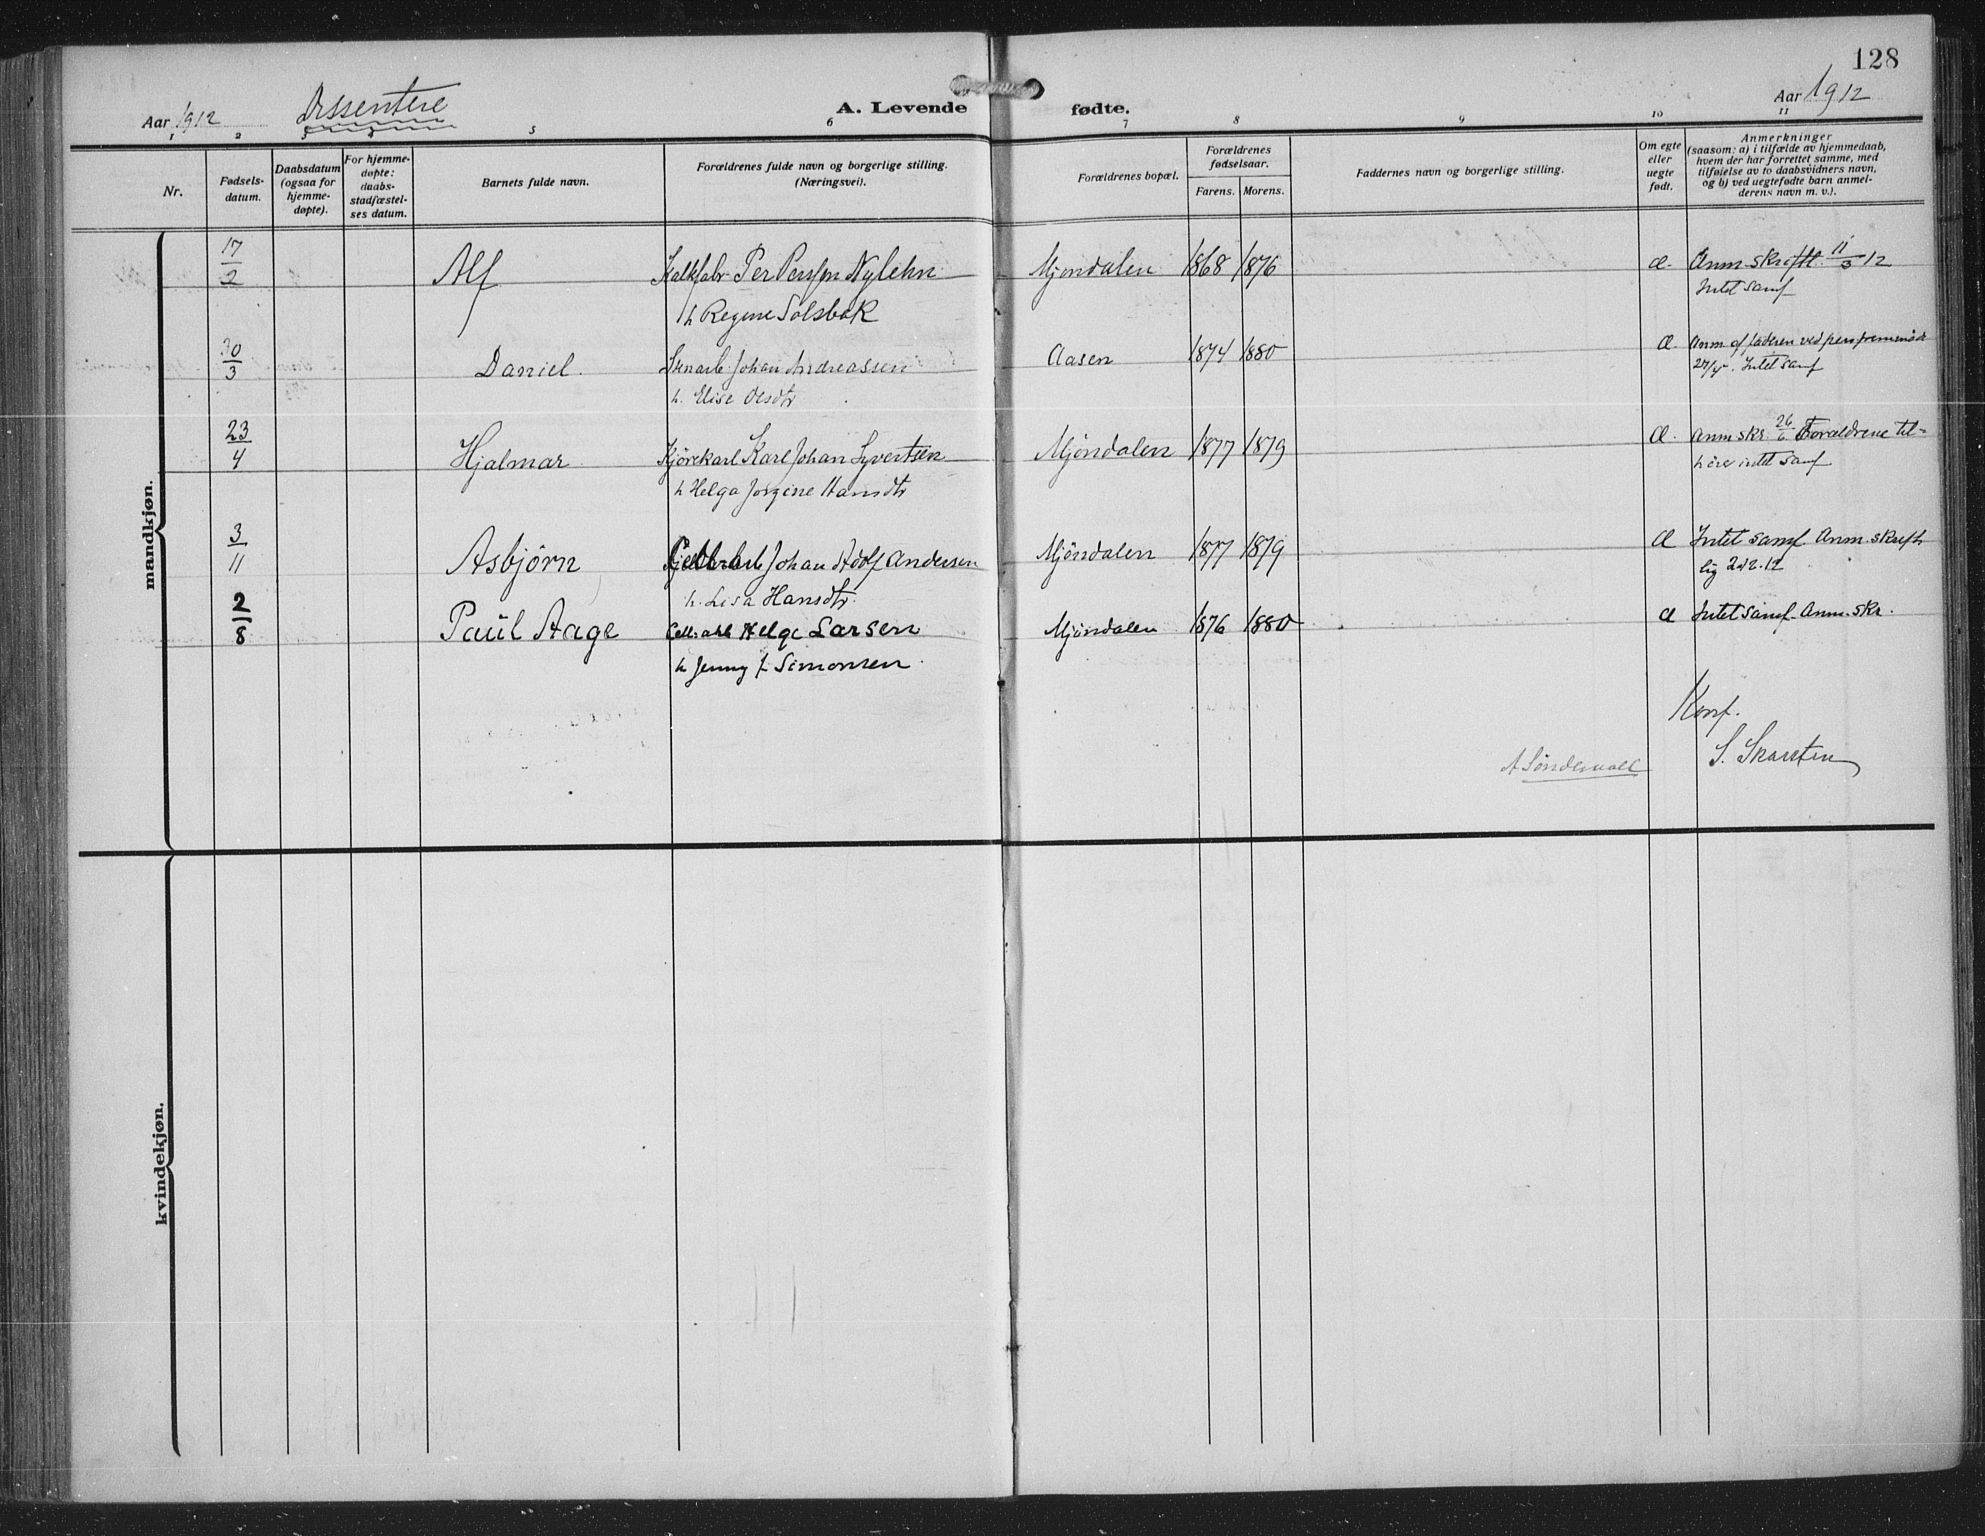 128
Aar 1912 Dissentere A. Levende fødte. Aar 1912
1 2 3 4 5 6 7 8 9 10 11
Nr.
Fødsels-
datum.
Daabsdatum
(ogsaa for
hjemme-
døpte).
For hjemme-
døpte:
daabs-
stadfæstel-
ses datum.
Barnets fulde navn.
Forældrenes fulde navn og borgerlige stilling.
(Næringsvei).
Forældrenes bopæl.
Forældrenes
fødselsaar.
Farens. Morens.
Faddernes navn og borgerlige stilling.
Om egte
eller
uegte
født.
Anmerkninger
(saasom: a) i tilfælde av hjemmedaab,
hvem der har forrettet samme, med
tilføielse av to daabsvidners navn,
og b) ved uegtefødte barn anmel-
derens navn m. v.).
mandkjøn.
17/2 Alf Per Persson Nylehn Mjøndalen 1868 1876 Æ. Anm. skriftl. 11/3 12
h. Regine Solsbak Intet samf
30/3 Daniel. Johan Andreassen Aasen 1874 1880 Æ. Anm. af faderen ved
h. Elise Olsdtr 27/4. Intet samf
23/4 Hjalmar Kjørekarl Karl Johan Syvertsen Mjøndalen 1877 1879 Æ. Anm skr. 26/6 Forældrene til-
h Helga Jørgine Hansdtr høre intet samf
3/11 Asbjørn Johan Adolf Andersen Mjøndalen 1877 1879 Æ Intet samf Anm. skrift
h. Lisa Hansdtr. lig
2/8 Paul Aage Cell.arb Helge Larsen Mjøndalen 1876 1880 Æ Intet samf. Anm. skr.
h Jenny f. Simonsen.
Konf.
S. Skarsten
A Søndervall
kvindekjøn.